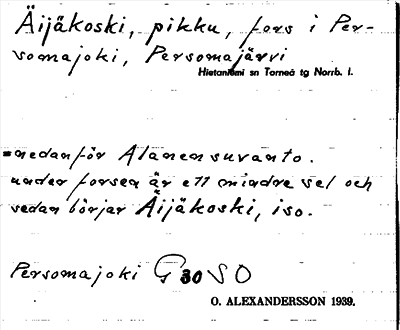 Äijäkoski, pikku, fors i Per-
somajoki, Persomajärvi
Hietaniemi sn Torneå tg Norrb. l.
nedanför Alanensuvanto.
under forsen är ett mindre sel och
sedan börjar Äijäkoski, iso.
Persomajoki G 30 SO
O. ALEXANDERSSON 1939.